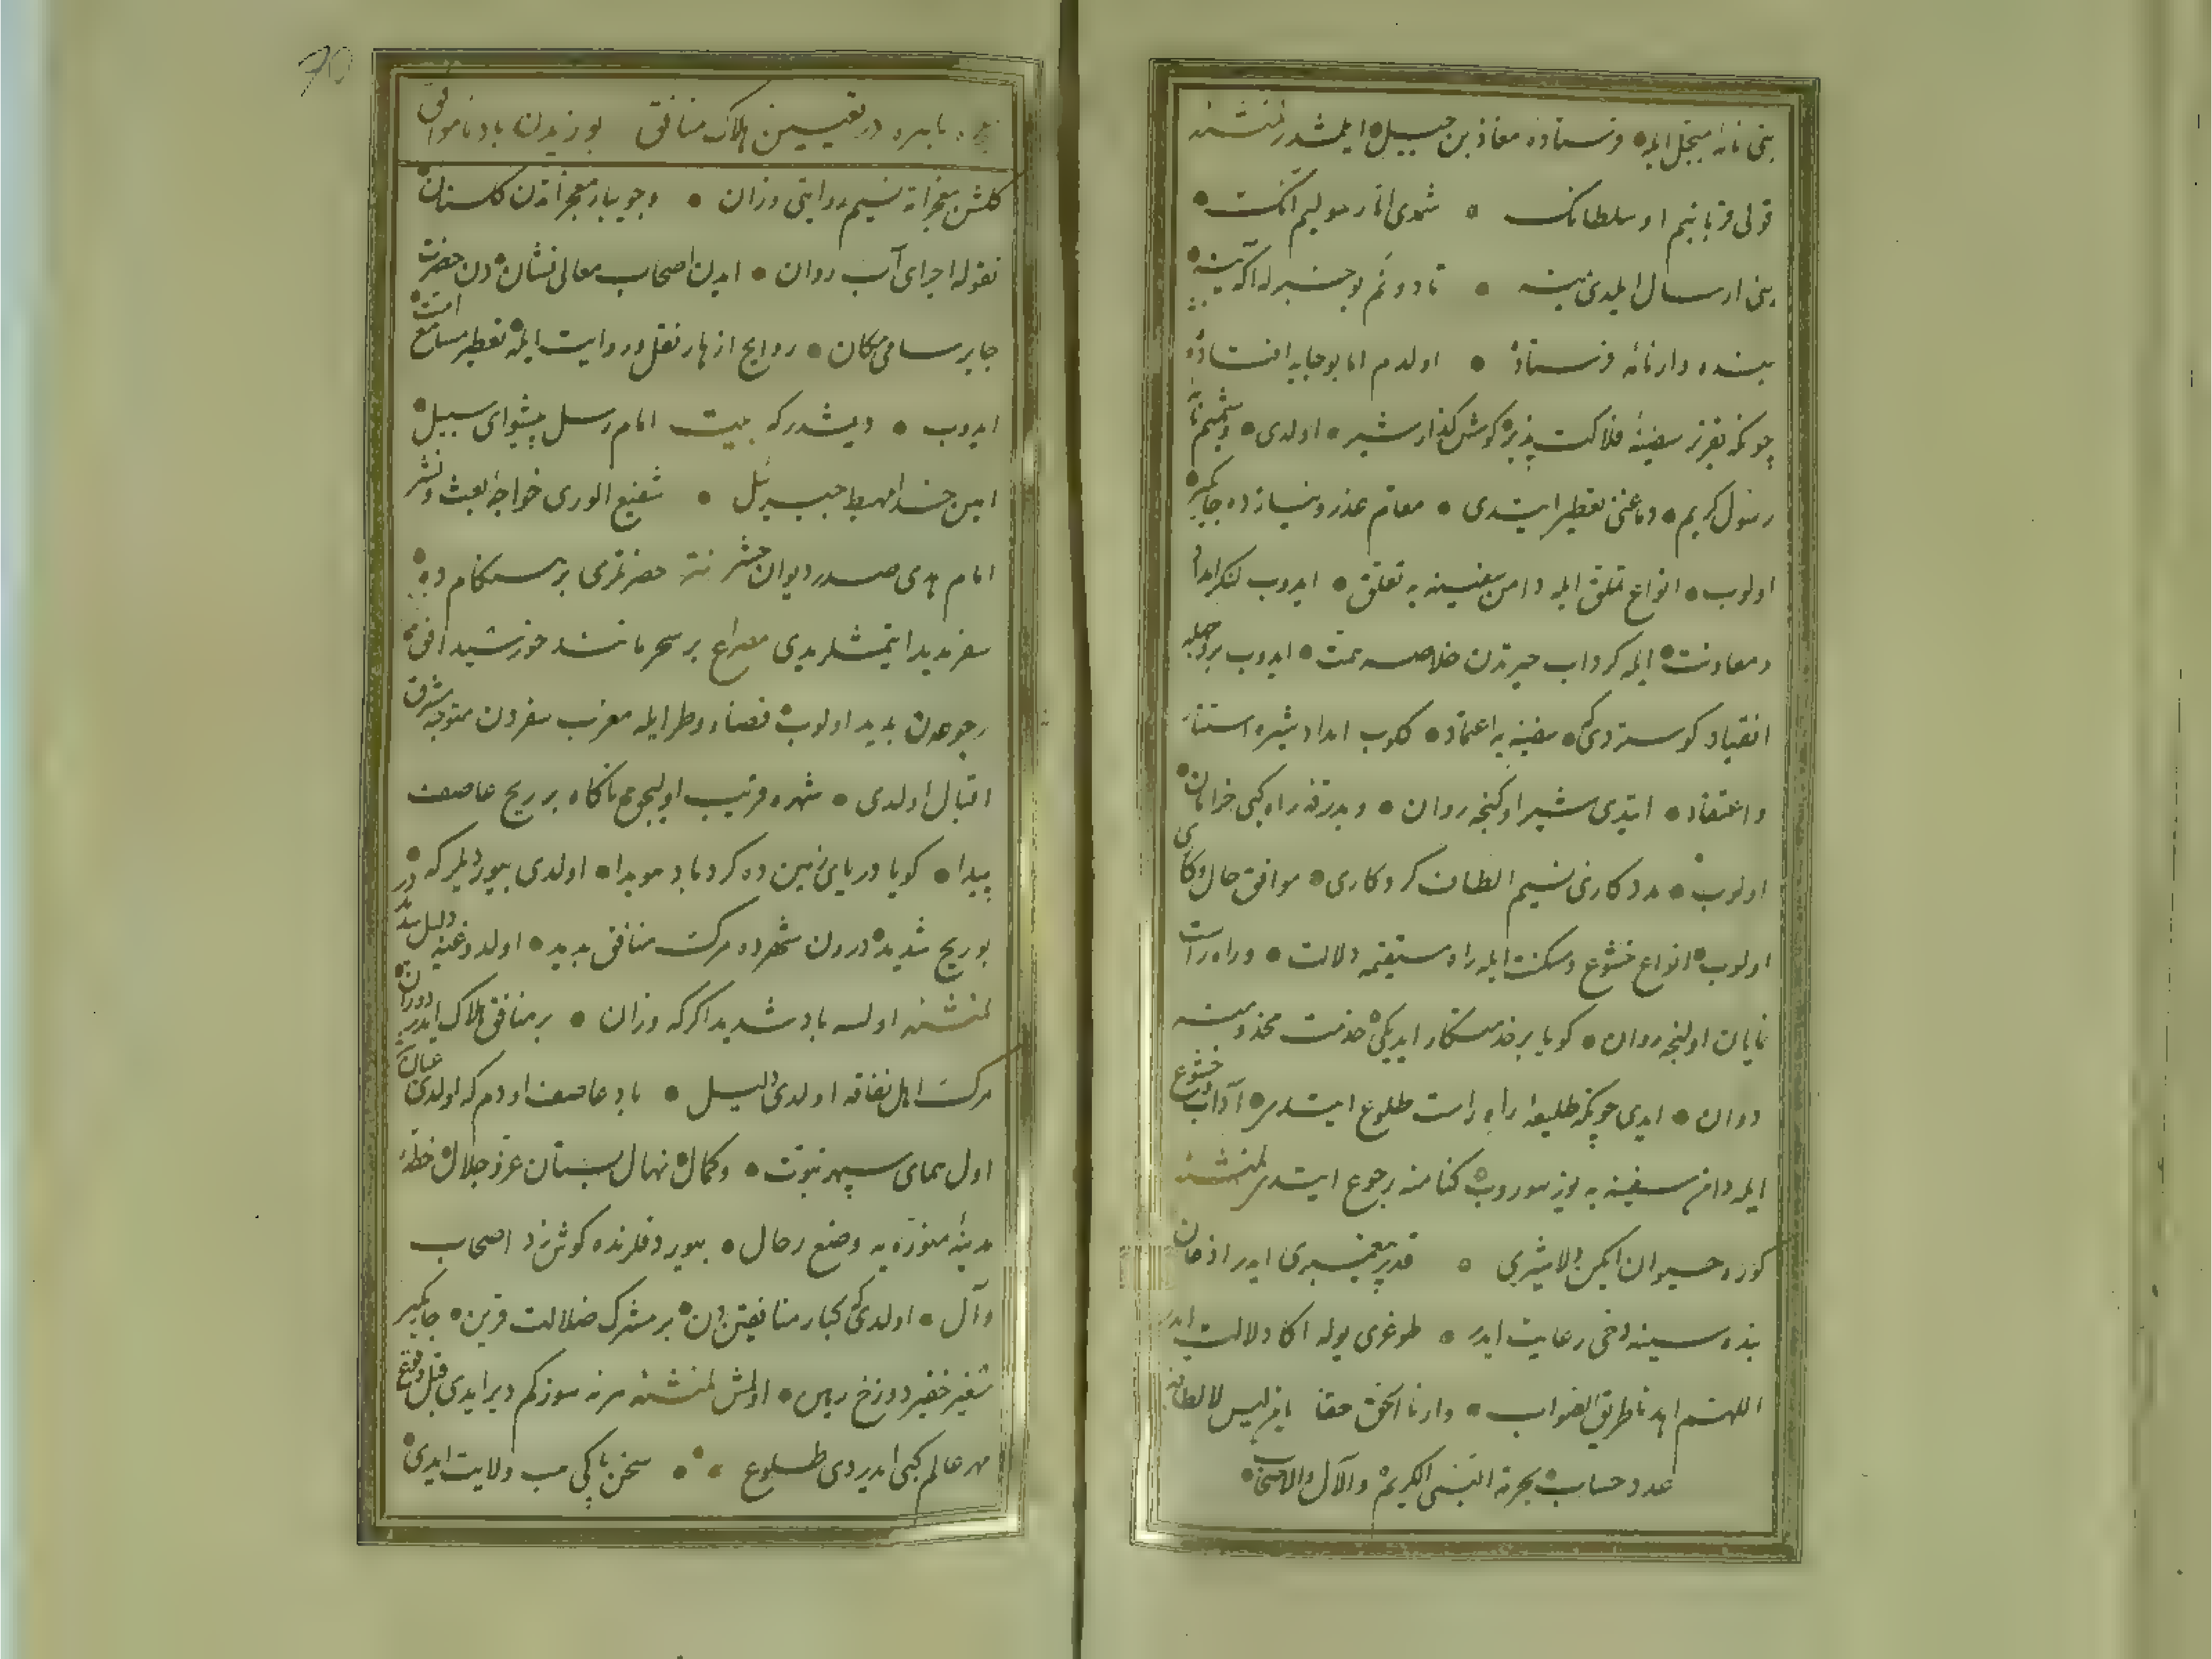 قولی قربانیم او سلطانک • شمدی انار سولیم انکت
بنی ارسال ایلدی یمنه • تا دونم بو جنبرله اکه ینه
بنده وار نامه فرستاده • اولدم اما بو جایه افتاده
چونکه تقریر سفینهٔ فلاکت پذیر کوش کذار شیر • اولدی • و شمیم نامهٔ
رسول کریم • دماغنی تعطیر ایتدی • مقام عذر و نیازده جایکیر
اولوب • انواع تملق ایله دامن سفینه به تعلق • ایدوب لنکر امداد
و معاونت ایله کرداب حیرتدن خلاصنه همت • ایدوب بر وجهله
انقیاد کوستردی که • سفینه یه اعتماد • کلوب امداد شیره استناد
و اعتقاد • ایتدی شیر اوکنجه روان • و بدرقهٔ راه کبی خرامان
اولوب • مددکاری نسیم الطاف کردکاری • موافق حال و کاری
اولوب انواع خشوع و مسکنت ایله راه مستقیمه دلالت • و راه راست
نمایان اولنجه روان • کویا بر خدمتکار ایدیکی خدمت مخدومنه
دوان • ایدی چونکه طلیعهٔ راه راست طلوع ایتدی • آداب خشوع
ایله دامن سفینه یه یوز سوروب کنامنه رجوع ایتدی لمنشئه
کورہ حیوان ایکن اول شیری • قدر پیغمبری ایدر اذعان
بنده سینه دخی رعایت ایدر • طوغری یوله اکا دلالت ایدر
اللهم اهدنا طریق الصواب • وارنا الحق حقا یا من لیس لالطافه
عدد حساب بحرمة النبی الکریم والآل والاصحاب
باهره در تعیین هلاک منافق بوزیدن باد ناموافق
کلشن معجزاته نسیم روایتی وزان • و جویبار معجزاتدن کلستان
نقوله اجرای آب روان • ایدن اصحاب معالی نشاندن حضرت
جابر سامی مکان • روایح ازهار نقل و روایت ایله تعطیر مسامع امت
ایدوب • دیمشدر که بیت امام رسل پیشوای سبیل
امین خدا مهبط جبرئیل • شفیع الوری خواجهٔ بعث و نشر
امام هدی صدر دیوان حشر حضرتلری بر هنکامده
سفر بدید ایتمشلریدی مصراع بر سحر مانند خورشید افق
رجوعدن بدید اولوب قضاء وطر ایله مغرب سفردن متوجه مشرق
اقبال اولدی • شهره قریب اولیجق ناکاه بر ریح عاصف
پیدا • کویا دریای زمین ده کردباد هویدا • اولدی بیوردیلر که
بو ریح شدید درون شهرده مرکت منافق بدید • اولدوغنه دلیلدر
لمنشئه اولسه باد شدید اکر که وزان • بر منافق هلاک ایدر دوران
مرکت اهل نفاقه اولدی دلیل • باد عاصف او دم که اولدی عیان
اول همای سپهر نبوت • و کمال نهال بستان عز و جلال خطهٔ
مدینهٔ منوره یه وضع رحال • بیوردقلرنده کوش زد اصحاب
و آل • اولدی که کبار منافقیندن بر مشرک ضلالت قرین • جایکیر
شفیر حفیر دوزخ رهین • اولمش لمنشئه هر نه سوز کم دیر ایدی قبل وقوع
مهر عالم کبی ایدردی طلوع • سخن پاکی هب ولایت ایدی